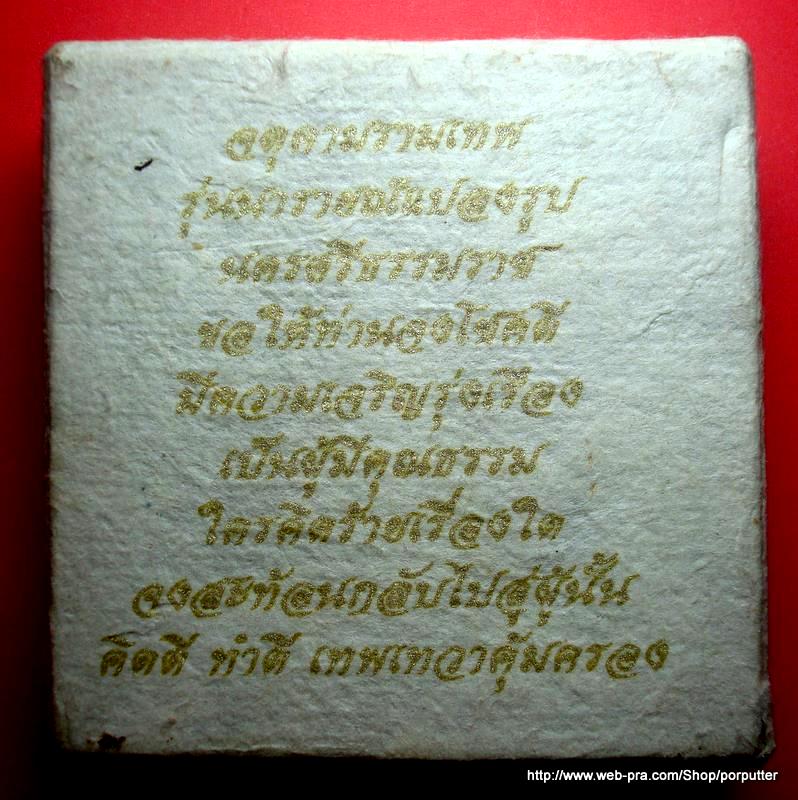 จตุคามรามเทพ
รุ่นนารายณ์แปลงรูป
นครศรีธรรมราช
ขอให้ท่านจงโชคดี
มีความเจริญรุ่งเรือง
เป็นผู้มีคุณธรรม
ใครคิดร้ายเรื่องใด
จงสะท้อนกลับไปสู่ผู้นั้น
คิดดี ทำดี เทพเทวาคุ้มครอง
http://www.web-pra.com/Shop/porputter